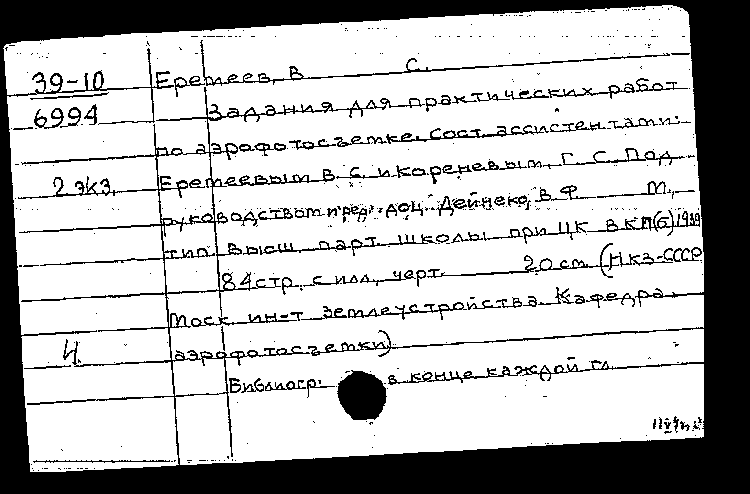 39-10 Еремеев, В С.
6994 Задания для практических работ
по аэрофотосъемке. Сост. ассистентами:
2 экз. Еремеевым В. С. и Кореневым, Г. С. Под
руководством пред. доц. Дейнеко, В. Ф. М.,
тип. Высш. парт. школы при ЦК ВКП(б) 1939
84 стр. с илл., черт. 20 см. (НКЗ-СССР
Моск. ин-т землеустройства. Кафедра
Н. аэрофотосъемки)
Библиогр: в конце каждой гл.